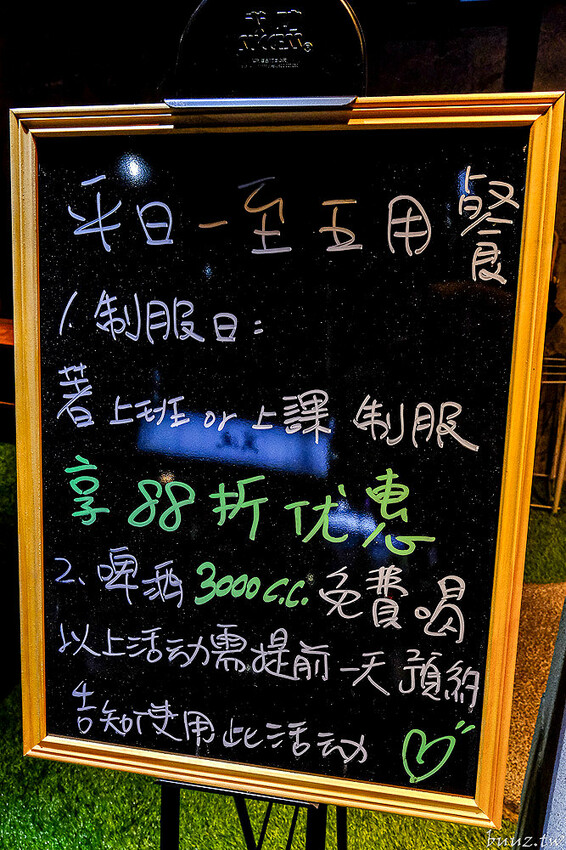 平日一至五用餐
1. 制服日:
著上班 or 上課 制服
享 88折优惠
2、啤酒 3000 c.c. 免費喝
以上活动需提前一天預約
告知使用此活动
buuz.tw